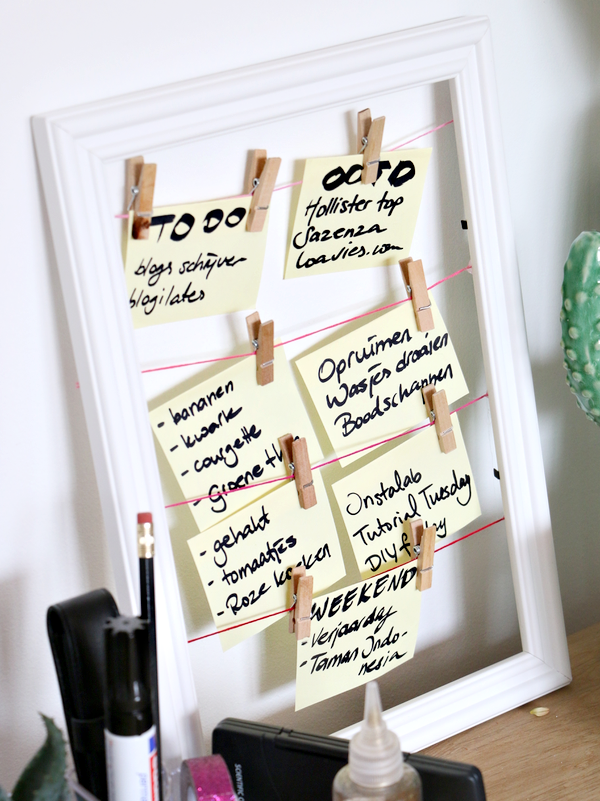 TO DO
blogs schrijven
blogilates
OOTD
Hollister top
Sazenza
loavies.com
- bananen
- kwark
- courgette
- Groene
Opruimen
Wasjes draaien
Boodschappen
- gehakt
- tomaatjes
- Roze koeken
Instalab
Tutorial Tuesday
DIY
WEEKEND
- Verjaardag
- Taman Indo-
nesia
SCIENTIFIC